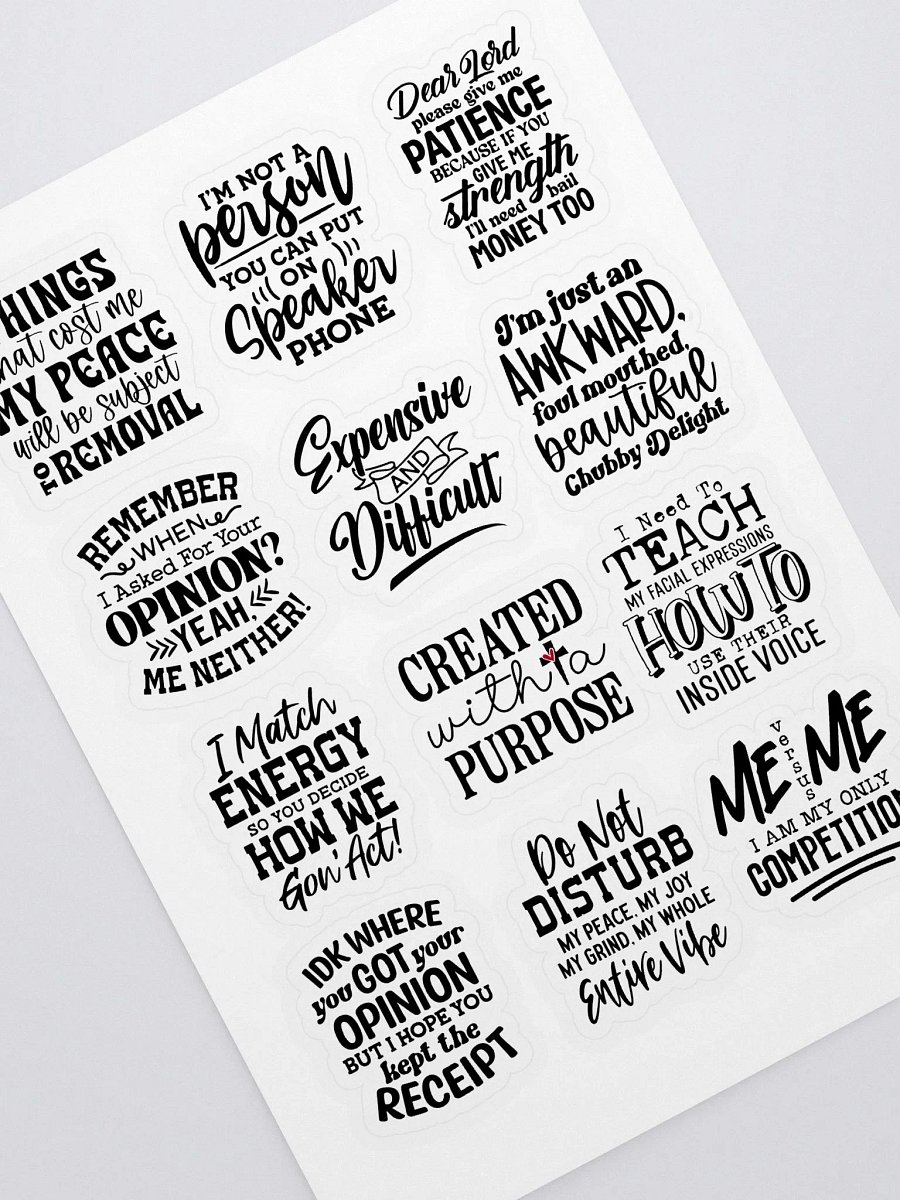 Dear Lord
please give me
PATIENCE
BECAUSE IF YOU
GIVE ME
strength
I'll need bail
MONEY TOO
I'M NOT A
person
YOU CAN PUT
ON
Speaker
PHONE
HINGS
hat cost me
MY PEACE
will be subject
TO REMOVAL
I'm just an
AWKWARD,
foul mouthed,
beautiful
Chubby Delight
Expensive
AND
Difficult
REMEMBER
WHEN
I Asked For Your
OPINION?
YEAH,
ME NEITHER!
I Need To
TEACH
MY FACIAL EXPRESSIONS
HOW TO
USE THEIR
INSIDE VOICE
CREATED
with a
PURPOSE
I Match
ENERGY
SO YOU DECIDE
HOW WE
Gon' Act!
ME versus ME
I AM MY ONLY
COMPETITION
Do Not
DISTURB
MY PEACE, MY JOY
MY GRIND, MY WHOLE
Entire Vibe
IDK WHERE
you GOT your
OPINION
BUT I HOPE YOU
kept the
RECEIPT